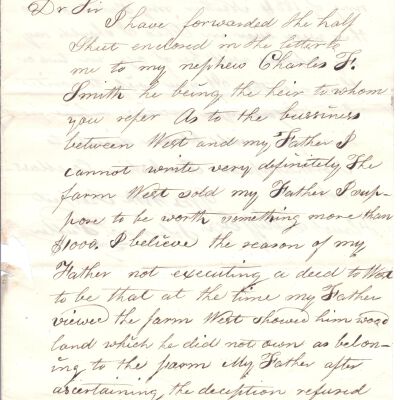 Dr Sir
I have forwarded the half
sheet enclosed in the letter to
me to my nephew Charles F.
Smith he being the heir to whom
you refer As to the bussiness
between West and my Father I
cannot write very definitely The
farm West sold my Father I sup-
pose to be worth something more than
$1000. I believe the reason of my
Father not executing a deed to West
to be that at the time my Father
viewed the farm West showed him wood
land which he did not own as belon-
ing to the farm My Father after
ascertaining the deception refused